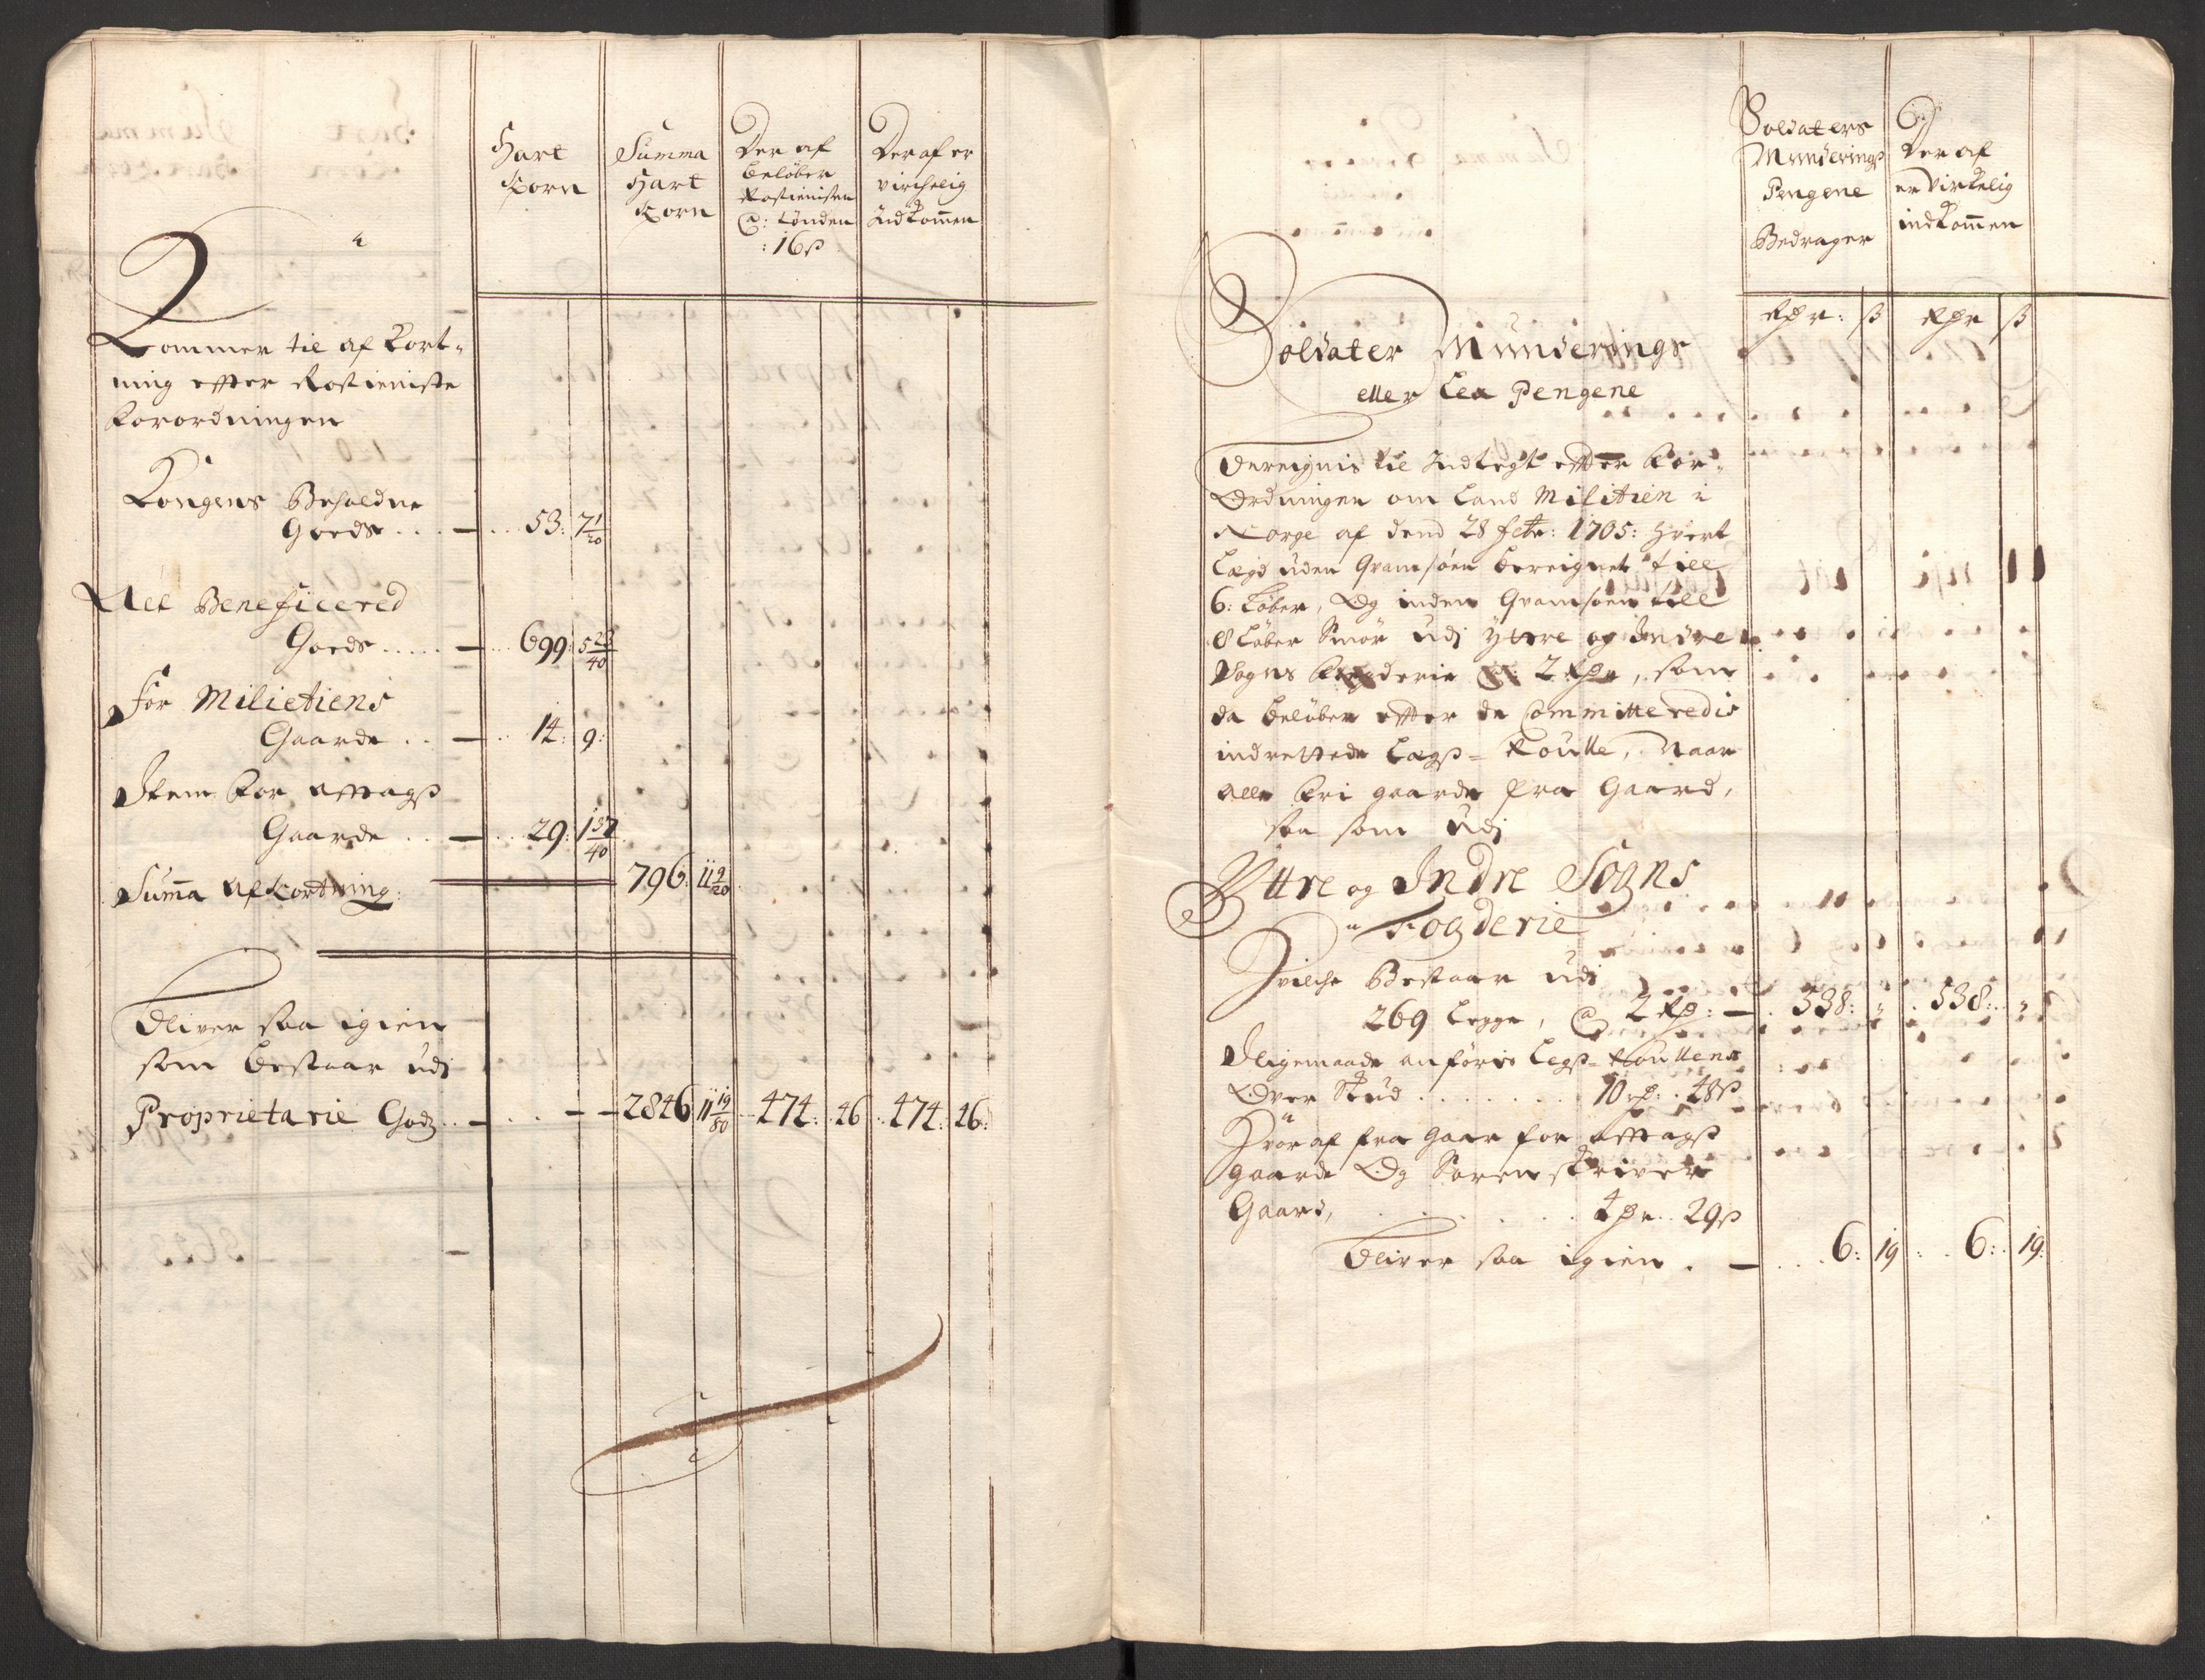 Hart
Korn
Summa
Hart
Korn
Der af
beløber
Rostienisten
@: tønden
:16ß
Der af er
virchelig
Indkommen
Kommer til af kort-
ning efter Rostieniste
forordningen
Kongens Beholdne
Goeds . . . — . . 53: 7 1/20
Alt Beneficered
Goeds . . . . . — . . 699: 5 23/40
For Milietiens
Gaarde . . — . . 14: 9:
Item for afftags
Gaarde . . — . . 29: 1 37/40
Summa Afkortning: 796: 11 9/20
Bliver saa igien
som bestaar udj
Proprietarie Godz . . — . . — — 2846 11 19/80 . . 474: . 46 . . 474: 46:
Soldaters
Munderings
Pengene
Bedrager
Der af
er virkelig
indkommen
Rdr: ß Rdr ß
Soldater Munderings
eller Læg Pengene
Bereignis til Indtegt efter For-
Ordningen om Land Militien i
Norge af dend 28 febr: 1705: hvert
Lægd uden Qvamsøen bereignet till
6: Løber, Og inden Qvamsøen till
8 Løber Smør udj Yttre og Indre
Sogns Fogderie @: 2 Rdr, som
da beløber efter de Committeredis
indrettede Lægs- Roulle, Naar
alle fri gaarde fra Gaard,
saa som udj
Yttre og Indre Sogns
Fogderie
Hvilche Bestaar udj
269 Legge, @ 2 Rd: — . 538: „ . 538: . „
Iligemaade anføris Legs- Roullens
Over Skud . . . . . . . 10 rd: . 48ß
Hvor af fra gaar for afftags
gaarde Og Sorenskriver
Gaard, . . . . . . 4 dr . 29ß
Bliver saa igien . — . . . 6: 19 : . . 6: . 19: